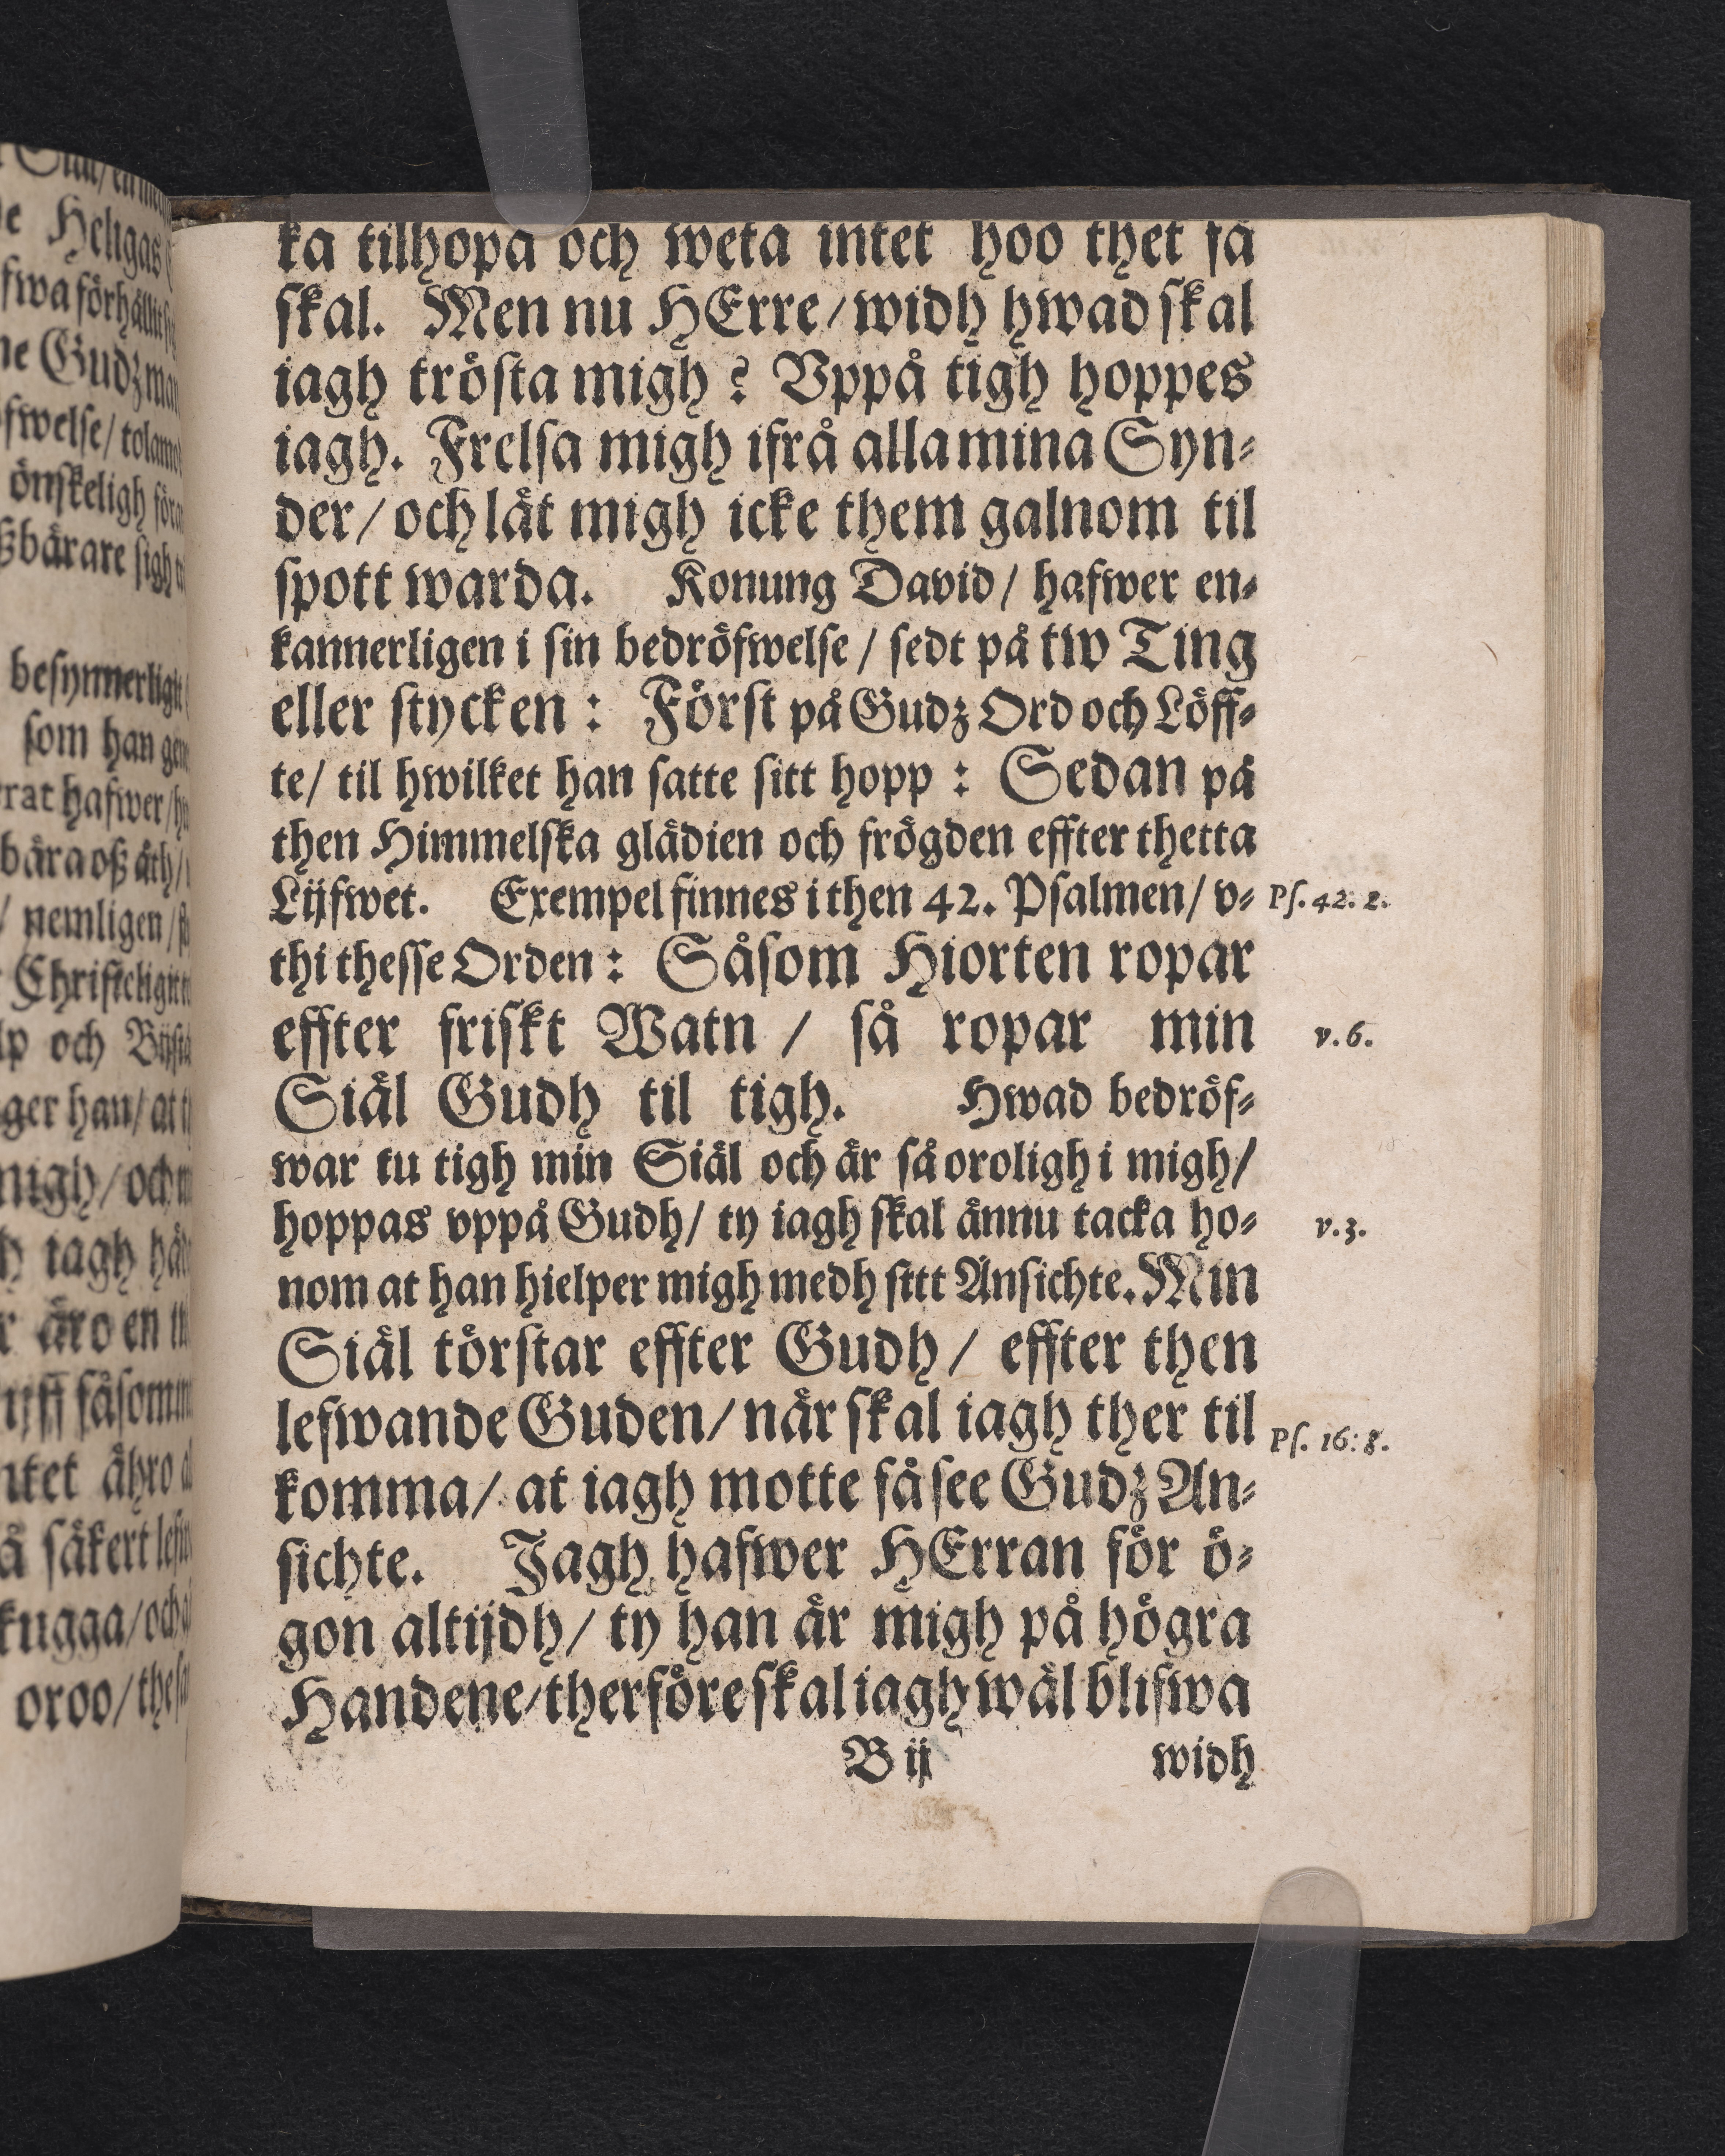 ka tilhopa och weta intet hoo thet få
skal. Men nu HErre/ widh hwad skal
iagh trösta migh? Vppå tigh hoppes
iagh. Frelsa migh ifrå alla mina Syn-
der/ och låt migh icke them galnom til
spott warda. Konung David/ hafwer en-
kannerligen i sin bedröfwelse/ sedt på tw Ting
eller stycken: Först på Gudz Ord och Löff-
te/ til hwilket han satte sitt hopp: Sedan på
then Himmelska glädien och frögden effter thetta
Lijfwet. Exempel finnes i then 42. Psalmen/ v- Ps. 42. 2.
thi thesse Orden: Såsom Hiorten ropar
effter friskt Watn/ så ropar min v. 6.
Siäl Gudh til tigh. Hwad bedröf-
war tu tigh min Siäl och är så oroligh i migh/
hoppas vppå Gudh/ ty iagh skal ännu tacka ho- v. 3.
nom at han hielper migh medh sitt Ansichte. Min
Siäl törstar effter Gudh/ effter then
lefwande Guden/ när skal iagh ther til Ps. 16: 8.
komma/ at iagh motte få see Gudz An-
sichte. Jagh hafwer HErran för ö-
gon altijdh/ ty han är migh på högra
Handene/ therföre skal iagh wäl blifwa
B ij widh